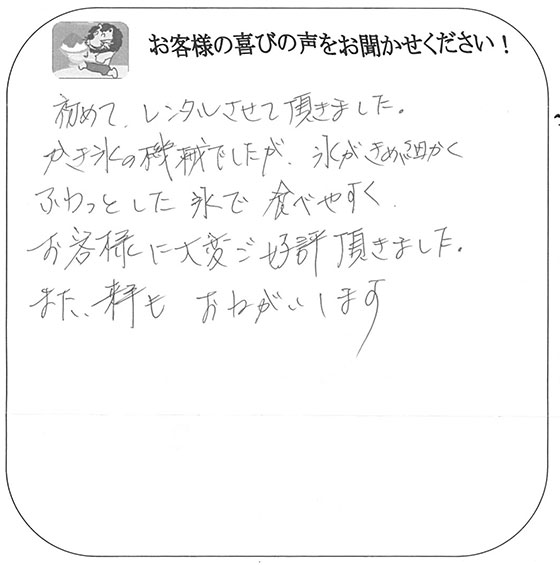 お客様の喜びの声をお聞かせください！
初めて、レンタルさせて頂きました。
かき氷の機械でしたが、氷がきめ細かく
ふわっとした氷で食べやすく、
お客様に大変ご好評頂きました。
また、来年も おねがいします